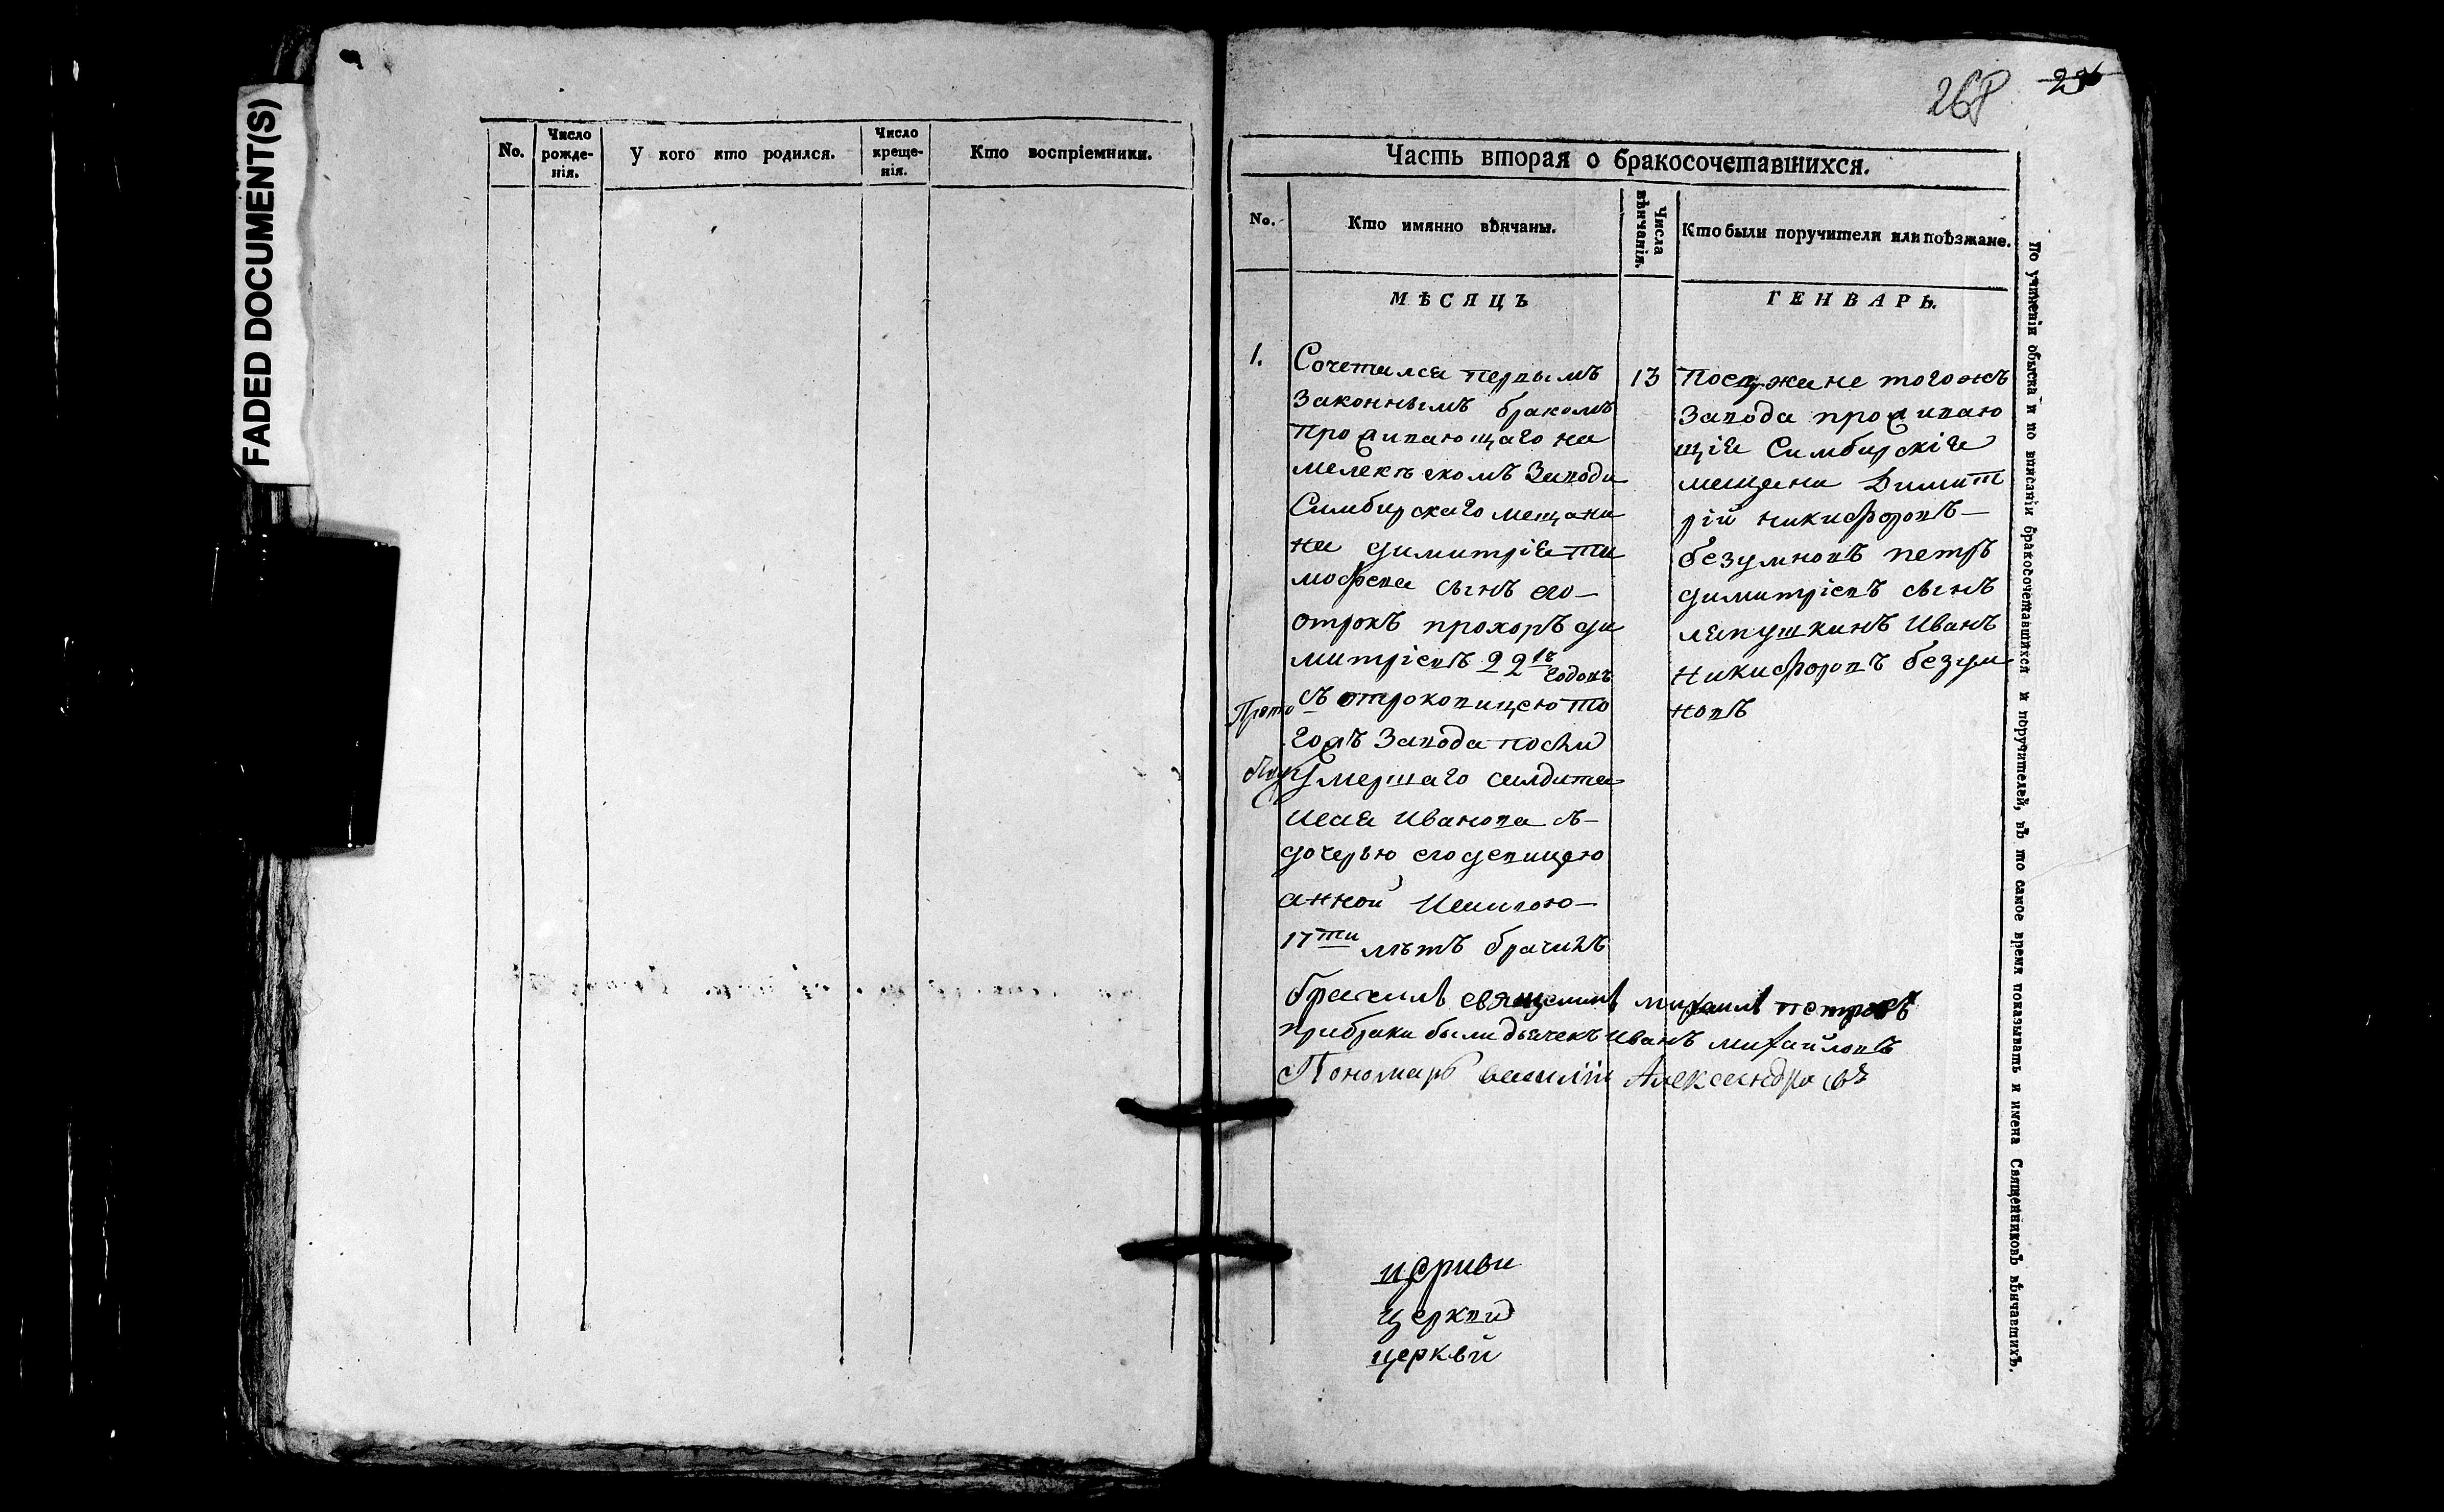 FADED DOCUMENT(S)
No.
Число рожденія.
У кого кто родился.
Число крещенія.
Кто воспріемники.
268
Часть вторая о бракосочетавшихся.
No.
Кто имянно вѣнчаны.
Числа вѣнчанія.
Кто были поручители или поѣзжане.
МѢСЯЦЪ
ГЕНВАРЬ.
1.
Сочетался первымъ
законнымъ бракомъ
проживающаго на
мелекескомъ заводи
Симбирскаго мещани
на димитрія ти
мофева сынъ его
отрокъ прохоръ ди
митріевъ 22 годовъ
съ отроковицею то
гожъ завода посли
умершаго салдата
исая Иванова съ
дочерью его девицею
анной Исаивою
17ти лѣтъ брачилъ
13
Поезжане тогожъ
завода проживаю
щія Симбирскія
мещани Димит
рій никифоровъ
безумновъ петръ
димитріевъ сынъ
ляпушкинъ Иванъ
никифоровъ безум
новъ
брачилъ священикъ михаилъ петровъ
при браки были дьячекъ Иванъ михайловъ
Пономарь василіи Александровъ
церкви
церкви
По учиненіи обыска и по вписаніи бракосочетавшихся и поручителей, въ то самое время показывать и имена Священниковъ вѣнчавшихъ.